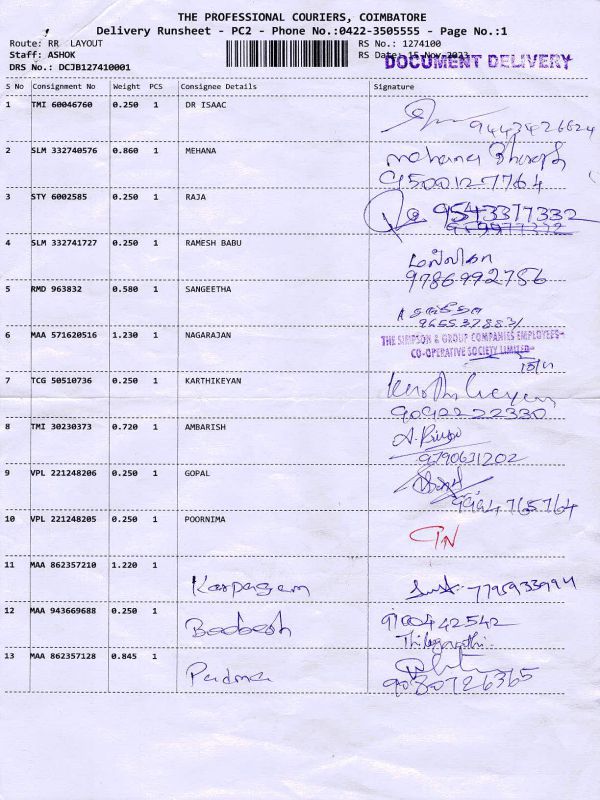 THE PROFESSIONAL COURIERS, COIMBATORE
Delivery Runsheet - PC2 - Phone No.:0422-3505555 - Page No.:1
Route: RR LAYOUT
Staff: ASHOK
DRS No.: DCJB127410001
RS No.: 1274100
RS Date: 15-Nov-2023
DOCUMENT DELIVERY
S No Consignment No Weight PCS Consignee Details Signature
1 TMI 60046760 0.250 1 DR ISAAC
9443426624
2 SLM 332740576 0.860 1 MEHANA
9500127764
3 STY 6002585 0.250 1 RAJA 9543377332
4 SLM 332741727 0.250 1 RAMESH BABU
9786992756
5 RMD 963832 0.580 1 SANGEETHA
9655378831
6 MAA 571620516 1.230 1 NAGARAJAN THE SIMPSON & GROUP COMPANIES EMPLOYEES
CO-OPERATIVE SOCIETY LIMITED
15/11
7 TCG 50510736 0.250 1 KARTHIKEYAN
9092222330
8 TMI 30230373 0.720 1 AMBARISH
9790631202
9 VPL 221248206 0.250 1 GOPAL
9994765764
10 VPL 221248205 0.250 1 POORNIMA
11 MAA 862357210 1.220 1 Karpagam 7795933994
12 MAA 943669688 0.250 1 9100442542
13 MAA 862357128 0.845 1 Padma
9080726365